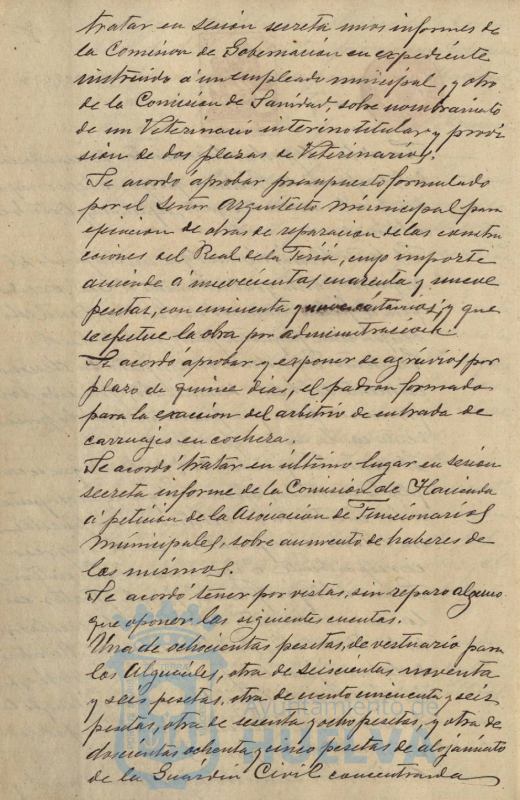 tratar en sesión secreta unos informes de
la Comisión de Gobernación en expediente
instruido á un empleado municipal, y otro
de la Comisión de Sanidad, sobre nombramiento
de un Veterinario interino titular y provi
sión de dos plazas de Veterinarios.
Se acordó aprobar presupuesto formulado
por el Señor Arquitecto Municipal para
ejecucion de obras de reparacion de las construc
ciones del Real de la Feria, cuyo importe
asciende á novecientas cuarenta y nueve
pesetas, con cincuenta y nueve céntimos, y que
se efectue la obra por administración.
Se acordó aprobar y exponer de agravios por
plazo de quince dias, el padron formado
para la exaccion del arbitrio de entrada de
carruajes en cochera.
Se acordó tratar en último lugar en sesion
secreta informe de la Comisión de Hacienda
á petición de la Asociación de Funcionarios
Municipales, sobre aumento de haberes de
los mismos.
Se acordó tener por vistas, sin reparo alguno
que oponer las siguientes cuentas.
Una de ochocientas pesetas, de vestuario para
los Alguaciles, otra de seiscientas noventa
y seis pesetas, otra de ciento cincuenta y seis
pesetas, otra de sesenta y ocho pesetas, y otra de
doscientas ochenta y cinco pesetas de alojamiento
de la Guardia Civil concentrada
Ayuntamiento de
HUELVA